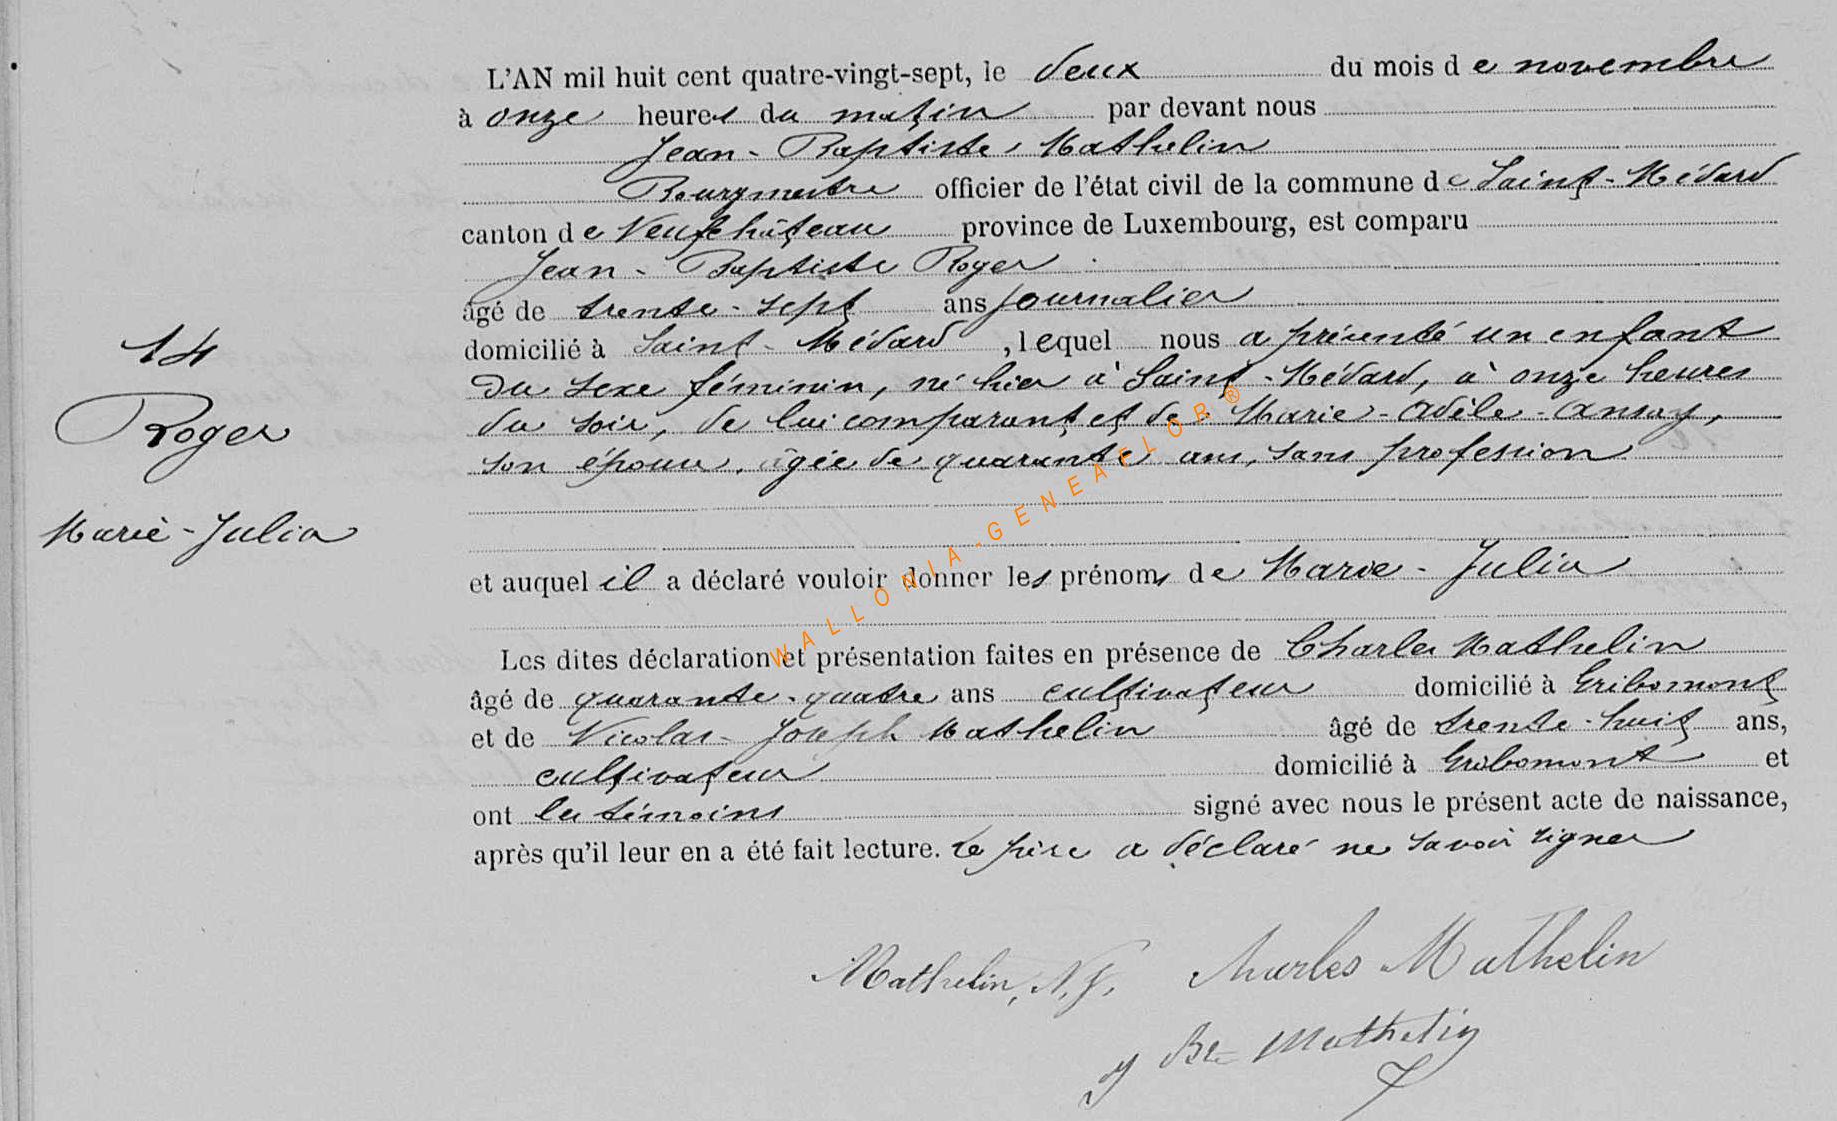 L'AN mil huit cent quatre-vingt-sept, le deux du mois de novembre
à onze heures du matin par devant nous
Jean-Baptiste Mathelin
Bourgmestre officier de l'état civil de la commune de Saint-Médard
canton de Neufchâteau province de Luxembourg, est comparu
Jean-Baptiste Roger
âgé de trente-sept ans journalier
14
domicilié à Saint-Médard, lequel nous a présenté un enfant
du sexe féminin, né hier à Saint-Médard, à onze heures
Roger
du soir, de lui comparant et de Marie-Adèle Ansay,
son épouse, âgée de quarante ans, sans profession
Marie-Julia
et auquel il a déclaré vouloir donner les prénoms de Marie-Julia
Les dites déclaration et présentation faites en présence de Charles Mathelin
âgé de quarante-quatre ans cultivateur domicilié à Gribomont
et de Nicolas-Joseph Mathelin âgé de trente-huit ans,
cultivateur domicilié à Gribomont et
ont les témoins signé avec nous le présent acte de naissance,
après qu'il leur en a été fait lecture. Le père a déclaré ne savoir signer
Mathelin, N. J. Charles Mathelin
J Bte Mathelin
WALLONIA-GENEAFLOR®